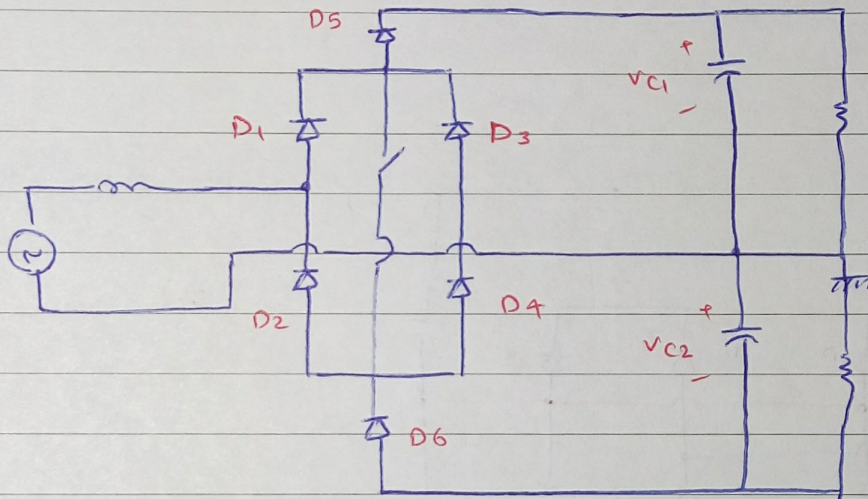 D5
+
VC1
-
D1
D3
~
D2
D4
+
VC2
-
D6